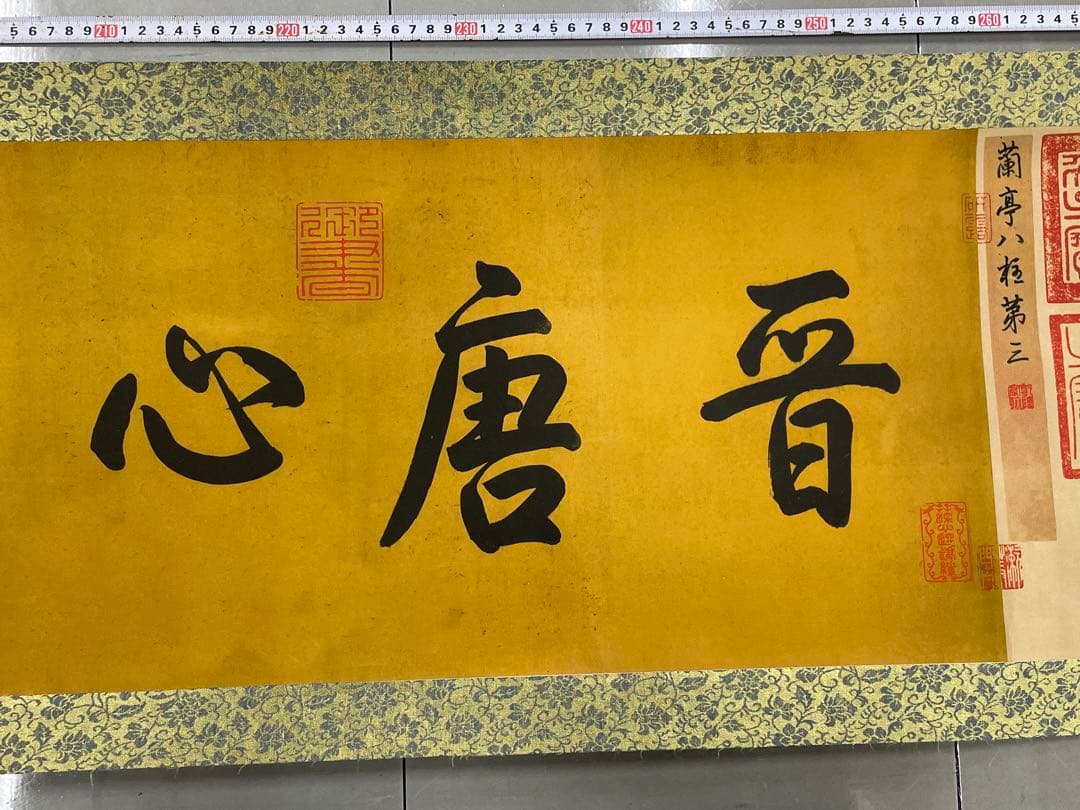 5 6 7 8 9 210 1 2 3 4 5 6 7 8 9 220 1 2 3 4 5 6 7 8 9 230 1 2 3 4 5 6 7 8 9 240 1 2 3 4 5 6 7 8 9 250 1 2 3 4 5 6 7 8 9 260 1 2 3 4 5
蘭亭八柱第三
晋唐心